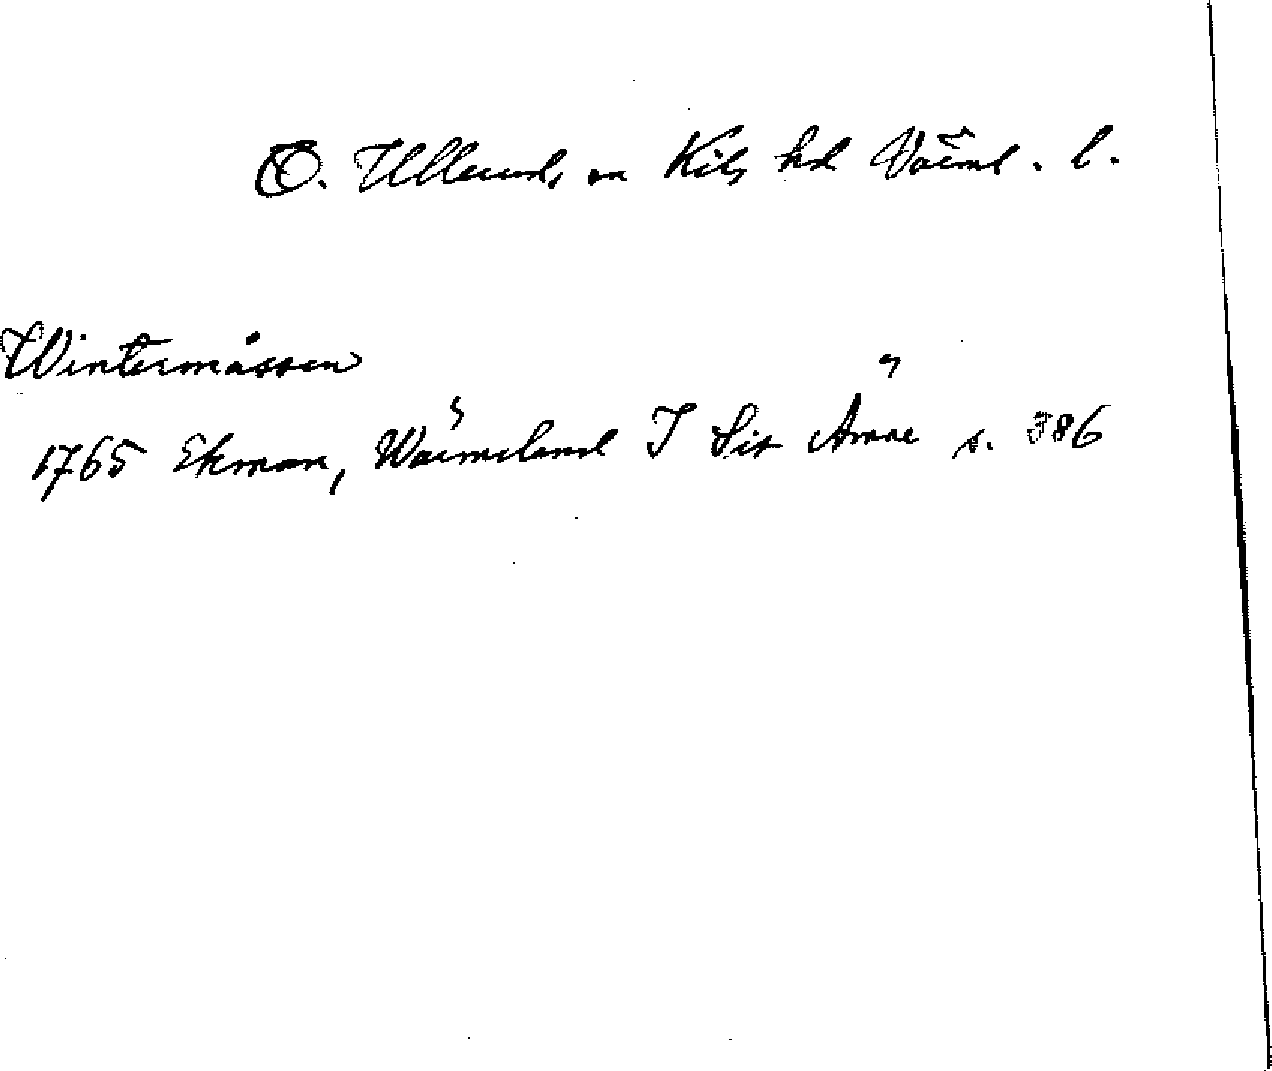 Ö. Ullerud, sn Kils hd Värml. l.
Wintermåssen
1765 Ekman, Wärmeland I Sir Ämne s. 386